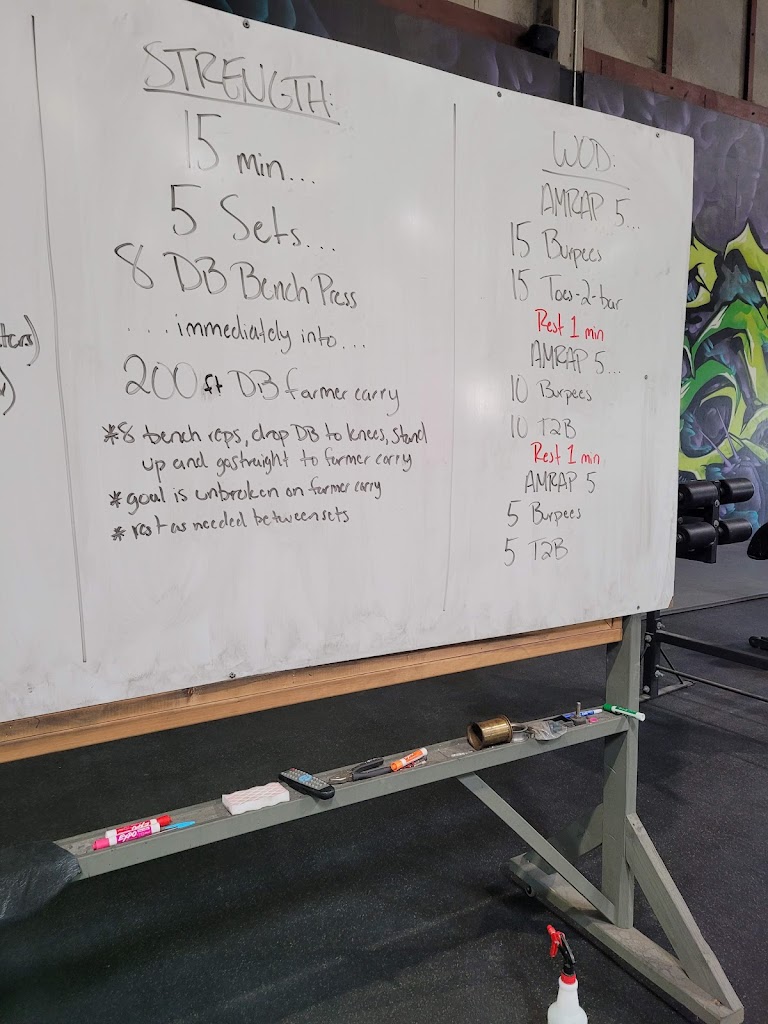 ters)
STRENGTH:
15 min...
5 Sets...
8 DB Bench Press
....immediately into...
200 ft DB farmer carry
*8 bench reps, drop DB to knees, stand
up and go straight to farmer carry
*goal is unbroken on farmer carry
*rest as needed between sets
WOD:
AMRAP 5...
15 Burpees
15 Toes-2-bar
Rest 1 min
AMRAP 5...
10 Burpees
10 T2B
Rest 1 min
AMRAP 5
5 Burpees
5 T2B
EXPO